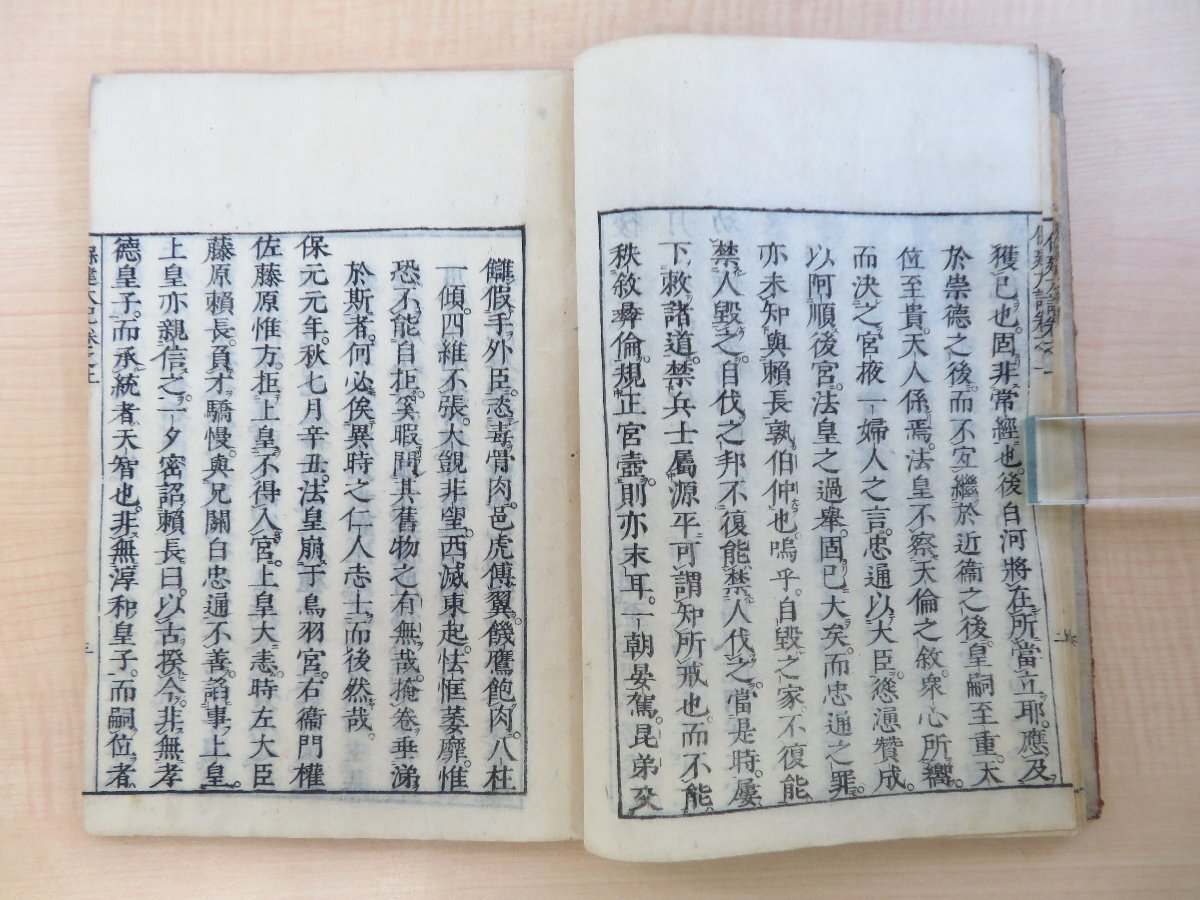 獲已也固非常經也後白河將在所當立耶應及
於崇德之後而不宜繼於近衞之後皇嗣至重天
位至貴天人係焉法皇不察天倫之敘衆心所嚮
而決之宮掖一婦人之言忠通以大臣慫慂贊成
以阿順後宮法皇之過舉固已大矣而忠通之罪
亦未知與賴長孰伯仲也嗚乎自毀之家不復能
禁人毀之自伐之邦不復能禁人伐之當是時屢
下敕諸道禁兵士屬源平可謂知所戒也而不能
秩敘彝倫規正宮壼則亦末耳一朝晏駕昆弟交
讎假手外臣恣毒骨肉邑虎傅翼饑鷹飽肉八柱
一傾四維不張大覬非望西滅東起怯恇萎靡惟
恐不能自拒奚暇問其舊物之有無哉掩卷垂涕
於斯者何必俟異時之仁人志士而後然哉
保元元年秋七月辛丑法皇崩于鳥羽宮右衞門權
佐藤原惟方拒上皇不得入宮上皇大恚時左大臣
藤原賴長負才驕慢與兄關白忠通不善諂事上皇
上皇亦親信之一夕密詔賴長曰以古揆今非無孝
德皇子而承統者天智也非無淳和皇子而嗣位者
保建大記卷之上